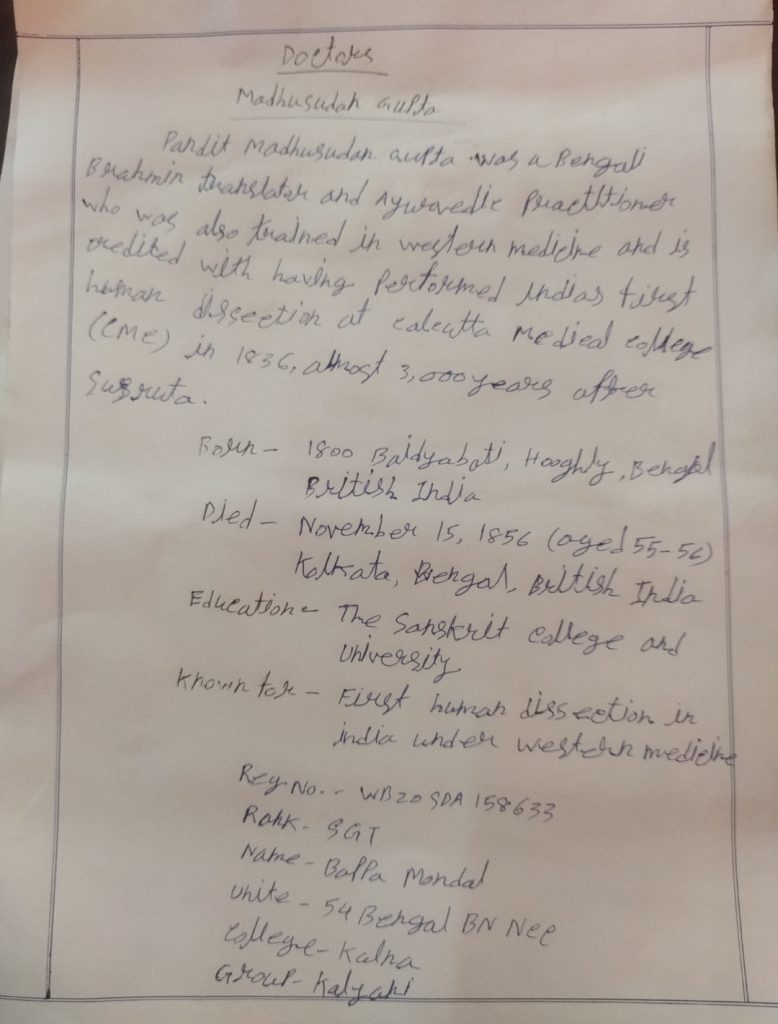 Doctors
Madhusudan Gupta
Pandit Madhusudan Gupta was a Bengali
Brahmin translator and Ayurvedic Practitioner
who was also trained in western medicine and is
credited with having Performed Indias first
human dissection at Calcutta Medical College
(CMC) in 1836, almost 3,000 years after
Susruta.
Born - 1800 Baidyabati, Hooghly, Bengal
British India
Died - November 15, 1856 (aged 55-56)
Kolkata, Bengal, British India
Education - The Sanskrit College and
University
Known for - First human dissection in
india under western medicine
Reg No. - WB20SDA158633
Rank - SGT
Name - Bappa Mondal
Unite - 54 Bengal BN NCC
College - Kalna
Group - Kalyani